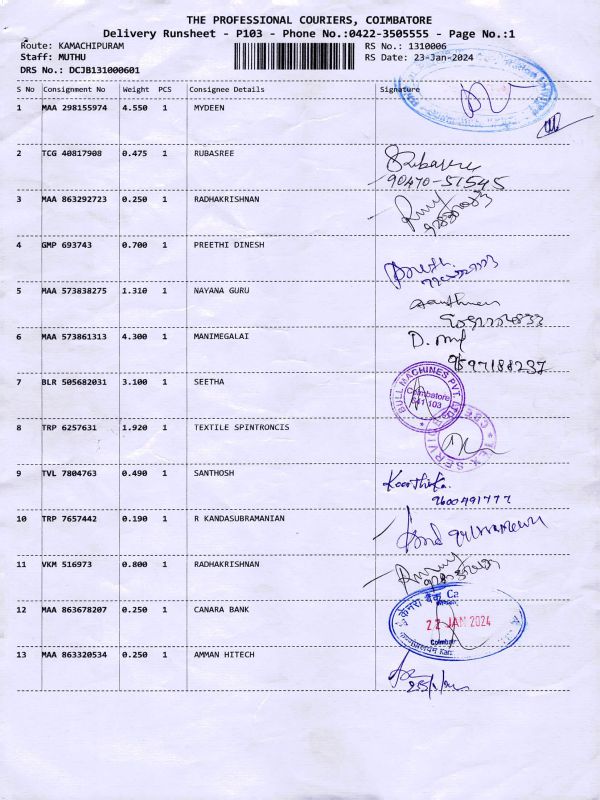 THE PROFESSIONAL COURIERS, COIMBATORE
Delivery Runsheet - P103 - Phone No.:0422-3505555 - Page No.:1
Route: KAMACHIPURAM RS No.: 1310006
Staff: MUTHU RS Date: 23-Jan-2024
DRS No.: DCJB131000601
S No Consignment No Weight PCS Consignee Details Signature
1 MAA 298155974 4.550 1 MYDEEN
2 TCG 40817908 0.475 1 RUBASREE Rubasree
90470-51545
3 MAA 863292723 0.250 1 RADHAKRISHNAN
4 GMP 693743 0.700 1 PREETHI DINESH
5 MAA 573838275 1.310 1 NAYANA GURU
6 MAA 573861313 4.300 1 MANIMEGALAI D.
9597188237
7 BLR 505682031 3.100 1 SEETHA BULL MACHINES PVT. LTD.
Coimbatore
641 103
8 TRP 6257631 1.920 1 TEXTILE SPINTRONCIS
9 TVL 7804763 0.490 1 SANTHOSH Karthika.
9600491777
10 TRP 7657442 0.190 1 R KANDASUBRAMANIAN
11 VKM 516973 0.800 1 RADHAKRISHNAN
12 MAA 863678207 0.250 1 CANARA BANK केनरा बैंक
22 JAN 2024
13 MAA 863320534 0.250 1 AMMAN HITECH